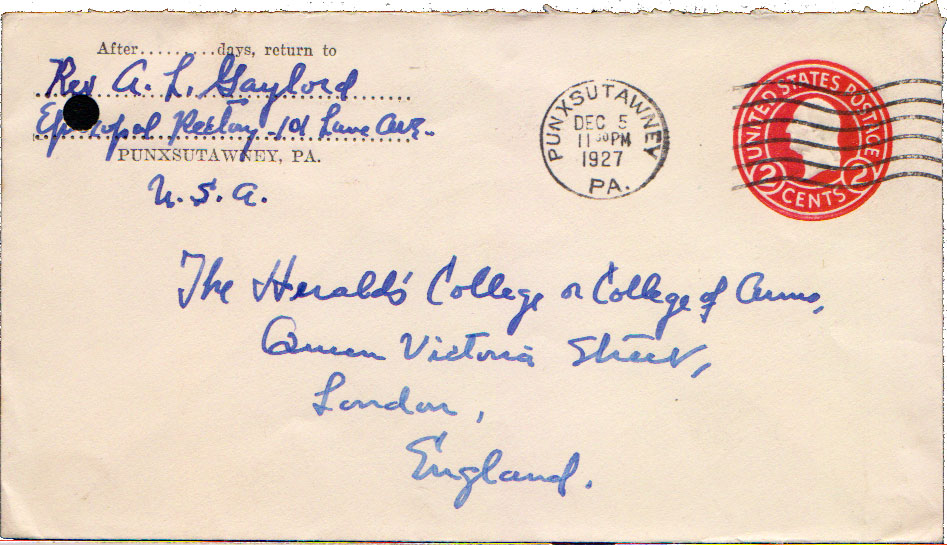 After.........days, return to
Rev A. L. Gaylord
Episcopal Rectory - 101 Lane Ave.
PUNXSUTAWNEY, PA.
U.S.A.
PUNXSUTAWNEY
DEC 5
11 30 PM
1927
PA.
UNITED STATES POSTAGE
2 CENTS 2
The Heralds' College or College of Arms,
Queen Victoria Street,
London,
England.